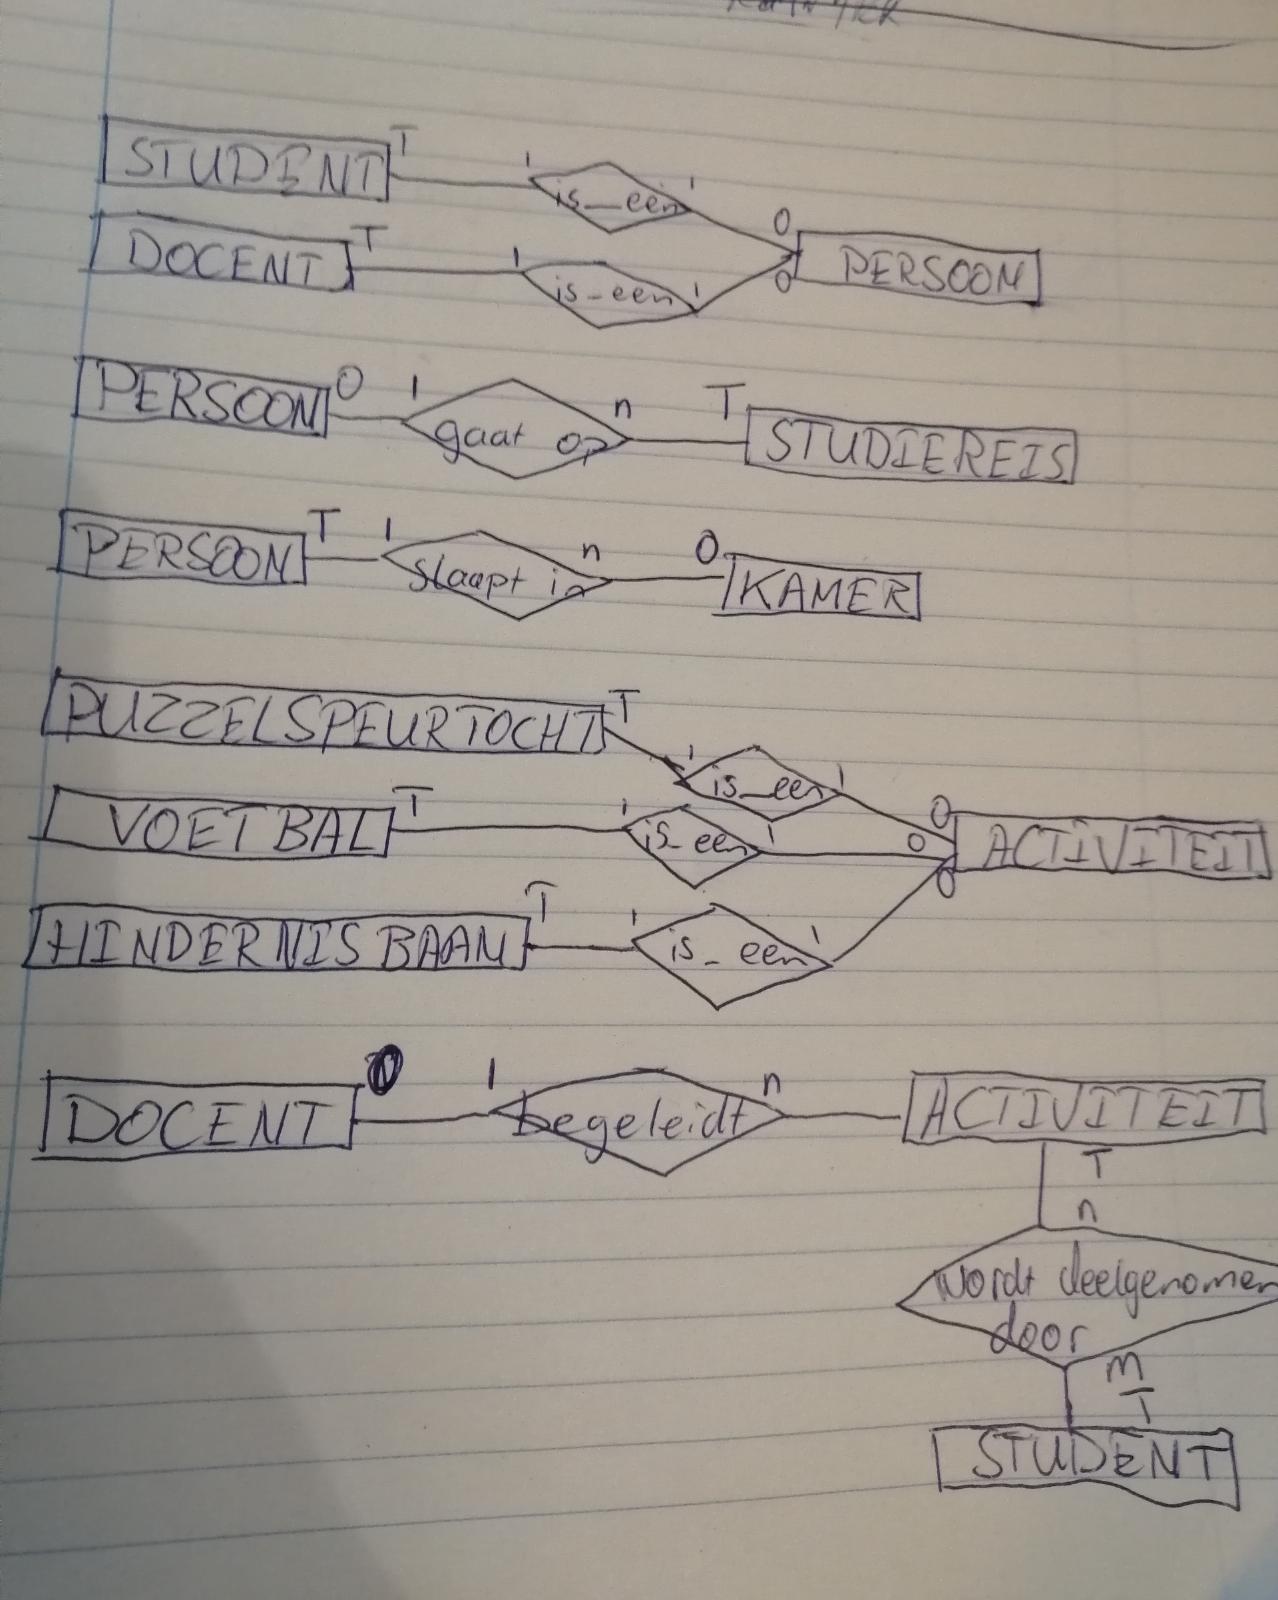 STUDENT T 1 is_een 1 O
DOCENT T 1 is_een 1 O PERSOON
PERSOON O 1 gaat op n T STUDIEREIS
PERSOON T 1 slaapt in n O KAMER
PUZZELSPEURTOCHT T 1 is_een 1 O
VOETBAL T 1 is_een 1 O ACTIVITEIT
HINDERNISBAAN T 1 is_een 1 O
DOCENT O 1 begeleidt n ACTIVITEIT
T
n
wordt deelgenomen
door
m
T
STUDENT